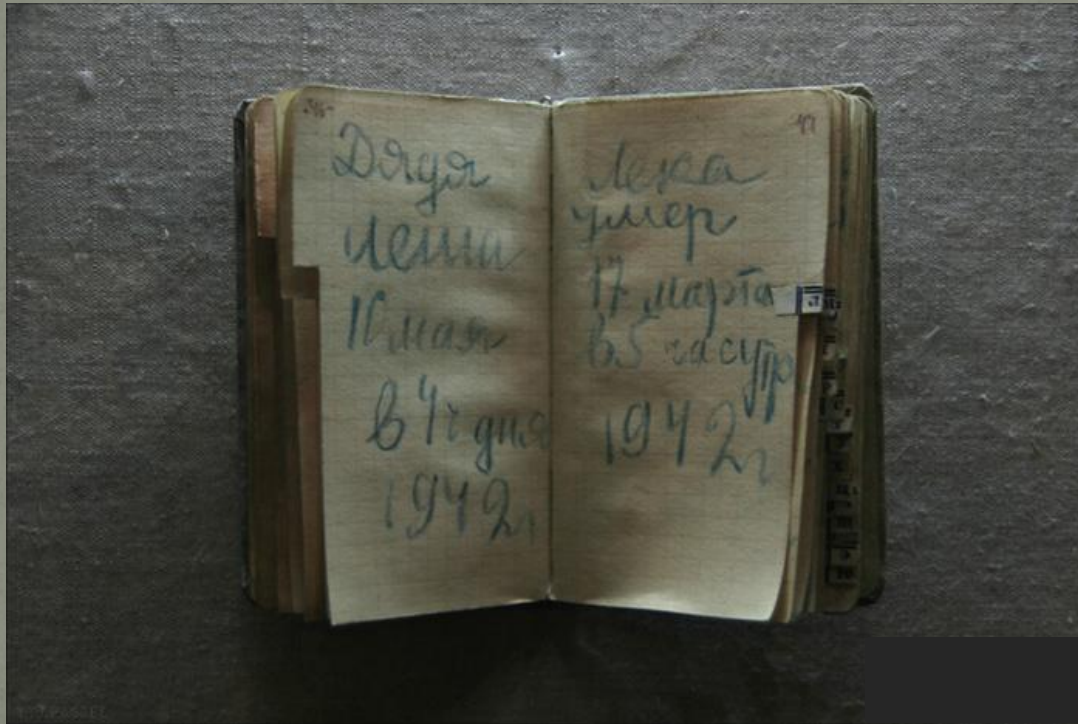 Дядя
Леша
10 мая
в 4ч дня
1942г
Лека
умер
17 марта
в 5 час утр
1942г